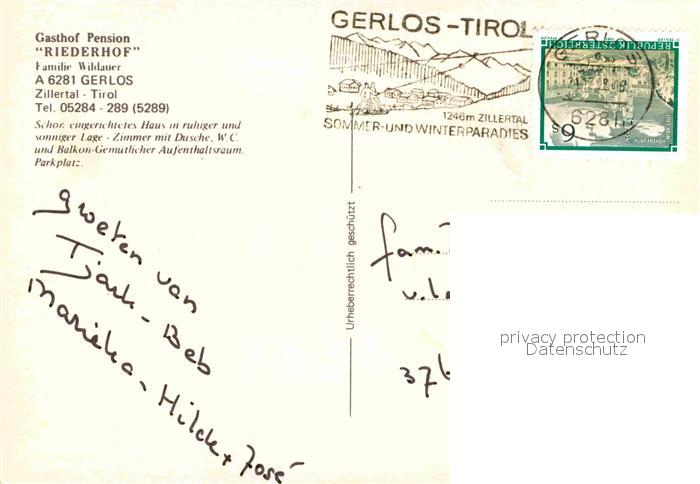 Gasthof Pension
"RIEDERHOF"
Familie Wildauer
A 6281 GERLOS
Zillertal - Tirol
Tel. 05284 - 289 (5289)
Schön eingerichtetes Haus in ruhiger und
sonniger Lage - Zimmer mit Dusche, W.C.
und Balkon-Gemütlicher Aufenthaltsraum.
Parkplatz.
GERLOS-TIROL
1246m ZILLERTAL
SOMMER-UND WINTERPARADIES
GERLOS
6281
REPUBLIK ÖSTERREICH
S 6
Urheberrechtlich geschützt
Groeten van
Tjark - Beb
Marieka - Hilde + José
fam.
376
privacy protection
Datenschutz